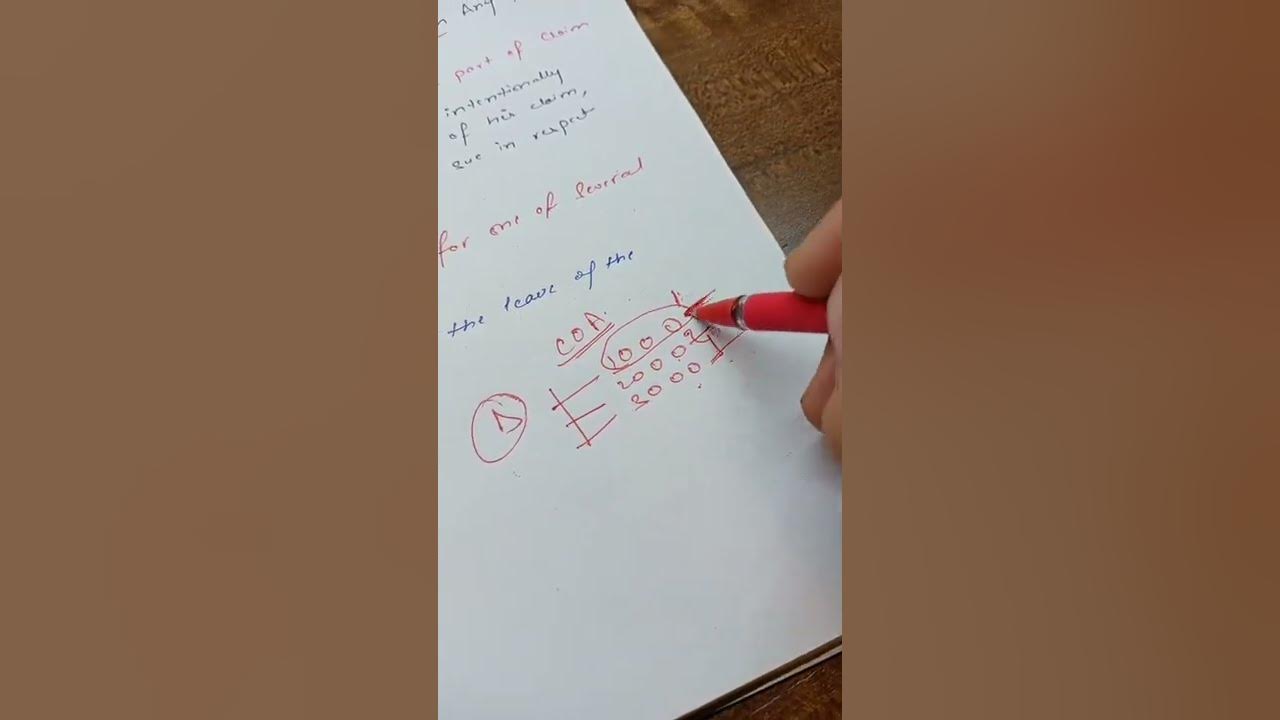 n Any
part of claim
intentionally
of his claim,
sue in respect
for one of several
the leave of the
COA.
1000
2000
3000
D